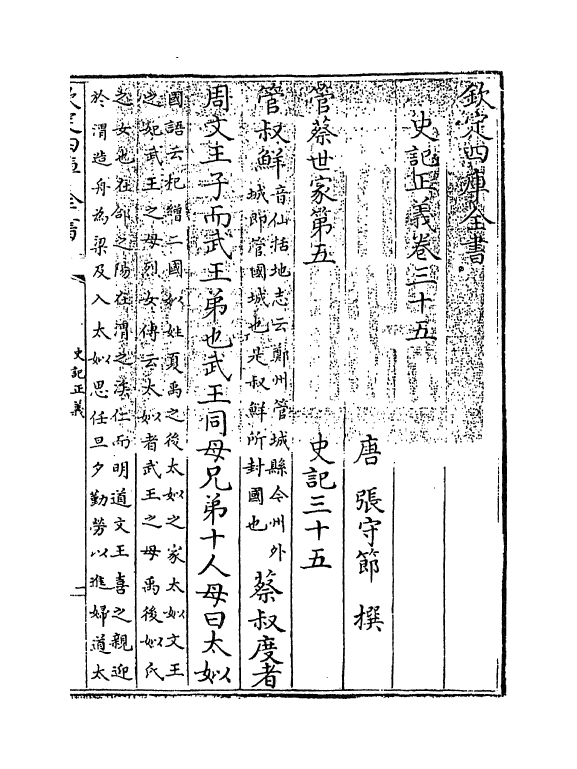 欽定四庫全書
史記正義卷三十五
唐 張守節 撰
管蔡世家第五 史記三十五
管叔鮮音仙括地志云鄭州管城縣今州外
城即管國城也是叔鮮所封國也蔡叔度者
周文王子而武王弟也武王同母兄弟十人母曰太姒
國語云杞繒二國姒姓夏禹之後太姒之家太姒文王
之妃武王之母烈女傳云太姒者武王之母禹後姒氏
之女也在郃之陽在渭之涘仁而明道文王喜之親迎
於渭造舟為梁及入太姒思任旦夕勤勞以進婦道太
史記正義
二